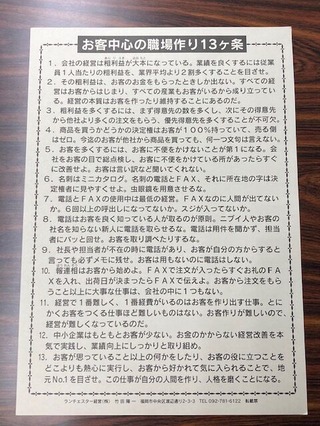 お客中心の職場作り13ヶ条
1．会社の経営は粗利益が大本になっている。業績を良くするには従業
員1人当たりの粗利益を、業界平均より2割多くすることを目ざせ。
2．その粗利益は、お客のお金をもらったときしか出ない。すべての経
営はお客からはじまり、すべての産業もお客がいるから成り立ってい
る。経営の本質はお客を作ったり維持することにあるのだ。
3．粗利益を多くするには、まず得意先の数を多くし、次にその得意先
から他社より多くの注文をもらう、優先得意先を多くすることが不可欠。
4．商品を買うかどうかの決定権はお客が100％持っていて、売る側
はゼロ。今迄のお客が他社から商品を買っても、何一つ文句は言えない。
5．お客を多くするには、お客に不便をかけないことが第1になる。会
社をお客の目で総点検し、お客に不便をかけている所があったらすぐ
に改善せよ。お客は言い訳など聞いてくれない。
6．名刺はミニカタログ。名刺の電話とFAX、それに所在地の字は決
定権者に見やすくせよ。虫眼鏡を用意させるな。
7．電話とFAXの使用中は最低の経営。FAXなのに人間が出てない
か。6回以上の呼出しになってないか。スジが入ってないか。
8．電話はお客を良く知っている人が取るのが原則。ニブイ人やお客の
社名を知らない新人に電話を取らせるな。電話は用件を聞かず、担当
者にパッと回せ。お客を取り調べたりするな。
9．社長や担当者が不在の時に電話があり、お客が自分の方からすると
言っても必ずメモに残せ。お客は用もないのに電話はしない。
10．報連相はお客から始めよ。FAXで注文が入ったらすぐお礼のFA
Xを入れ、出荷日が決まったらFAXで伝えよ。お客から注文をもら
うこと以上に大事な仕事は、会社の中に1つもない。
11．経営で1番難しく、1番経費がいるのはお客を作り出す仕事。とに
かくお客をつくる仕事ほど難しいものはない。お客作りが難しいので、
経営が難しくなっているのだ。
12．中小企業はもともとお客が少ない。お金のかからない経営改善を本
気で実践し、業績向上にしっかりと取り組め。
13．お客が思っていること以上の何かをしたり、お客の役に立つことを
どこよりも熱心に実行し、お客から好かれて気に入られることで、地
元No1を目ざせ。この仕事が自分の人間を作り、人格を磨くことになる。
ランチェスター経営(株) 竹田陽一 福岡市中央区渡辺通り2-3-3 TEL 092-761-6122 転載禁